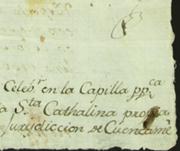 Celebr en la Capilla ppca
a Sta Cathalina propia
Jurisdiccion de Cuencamè